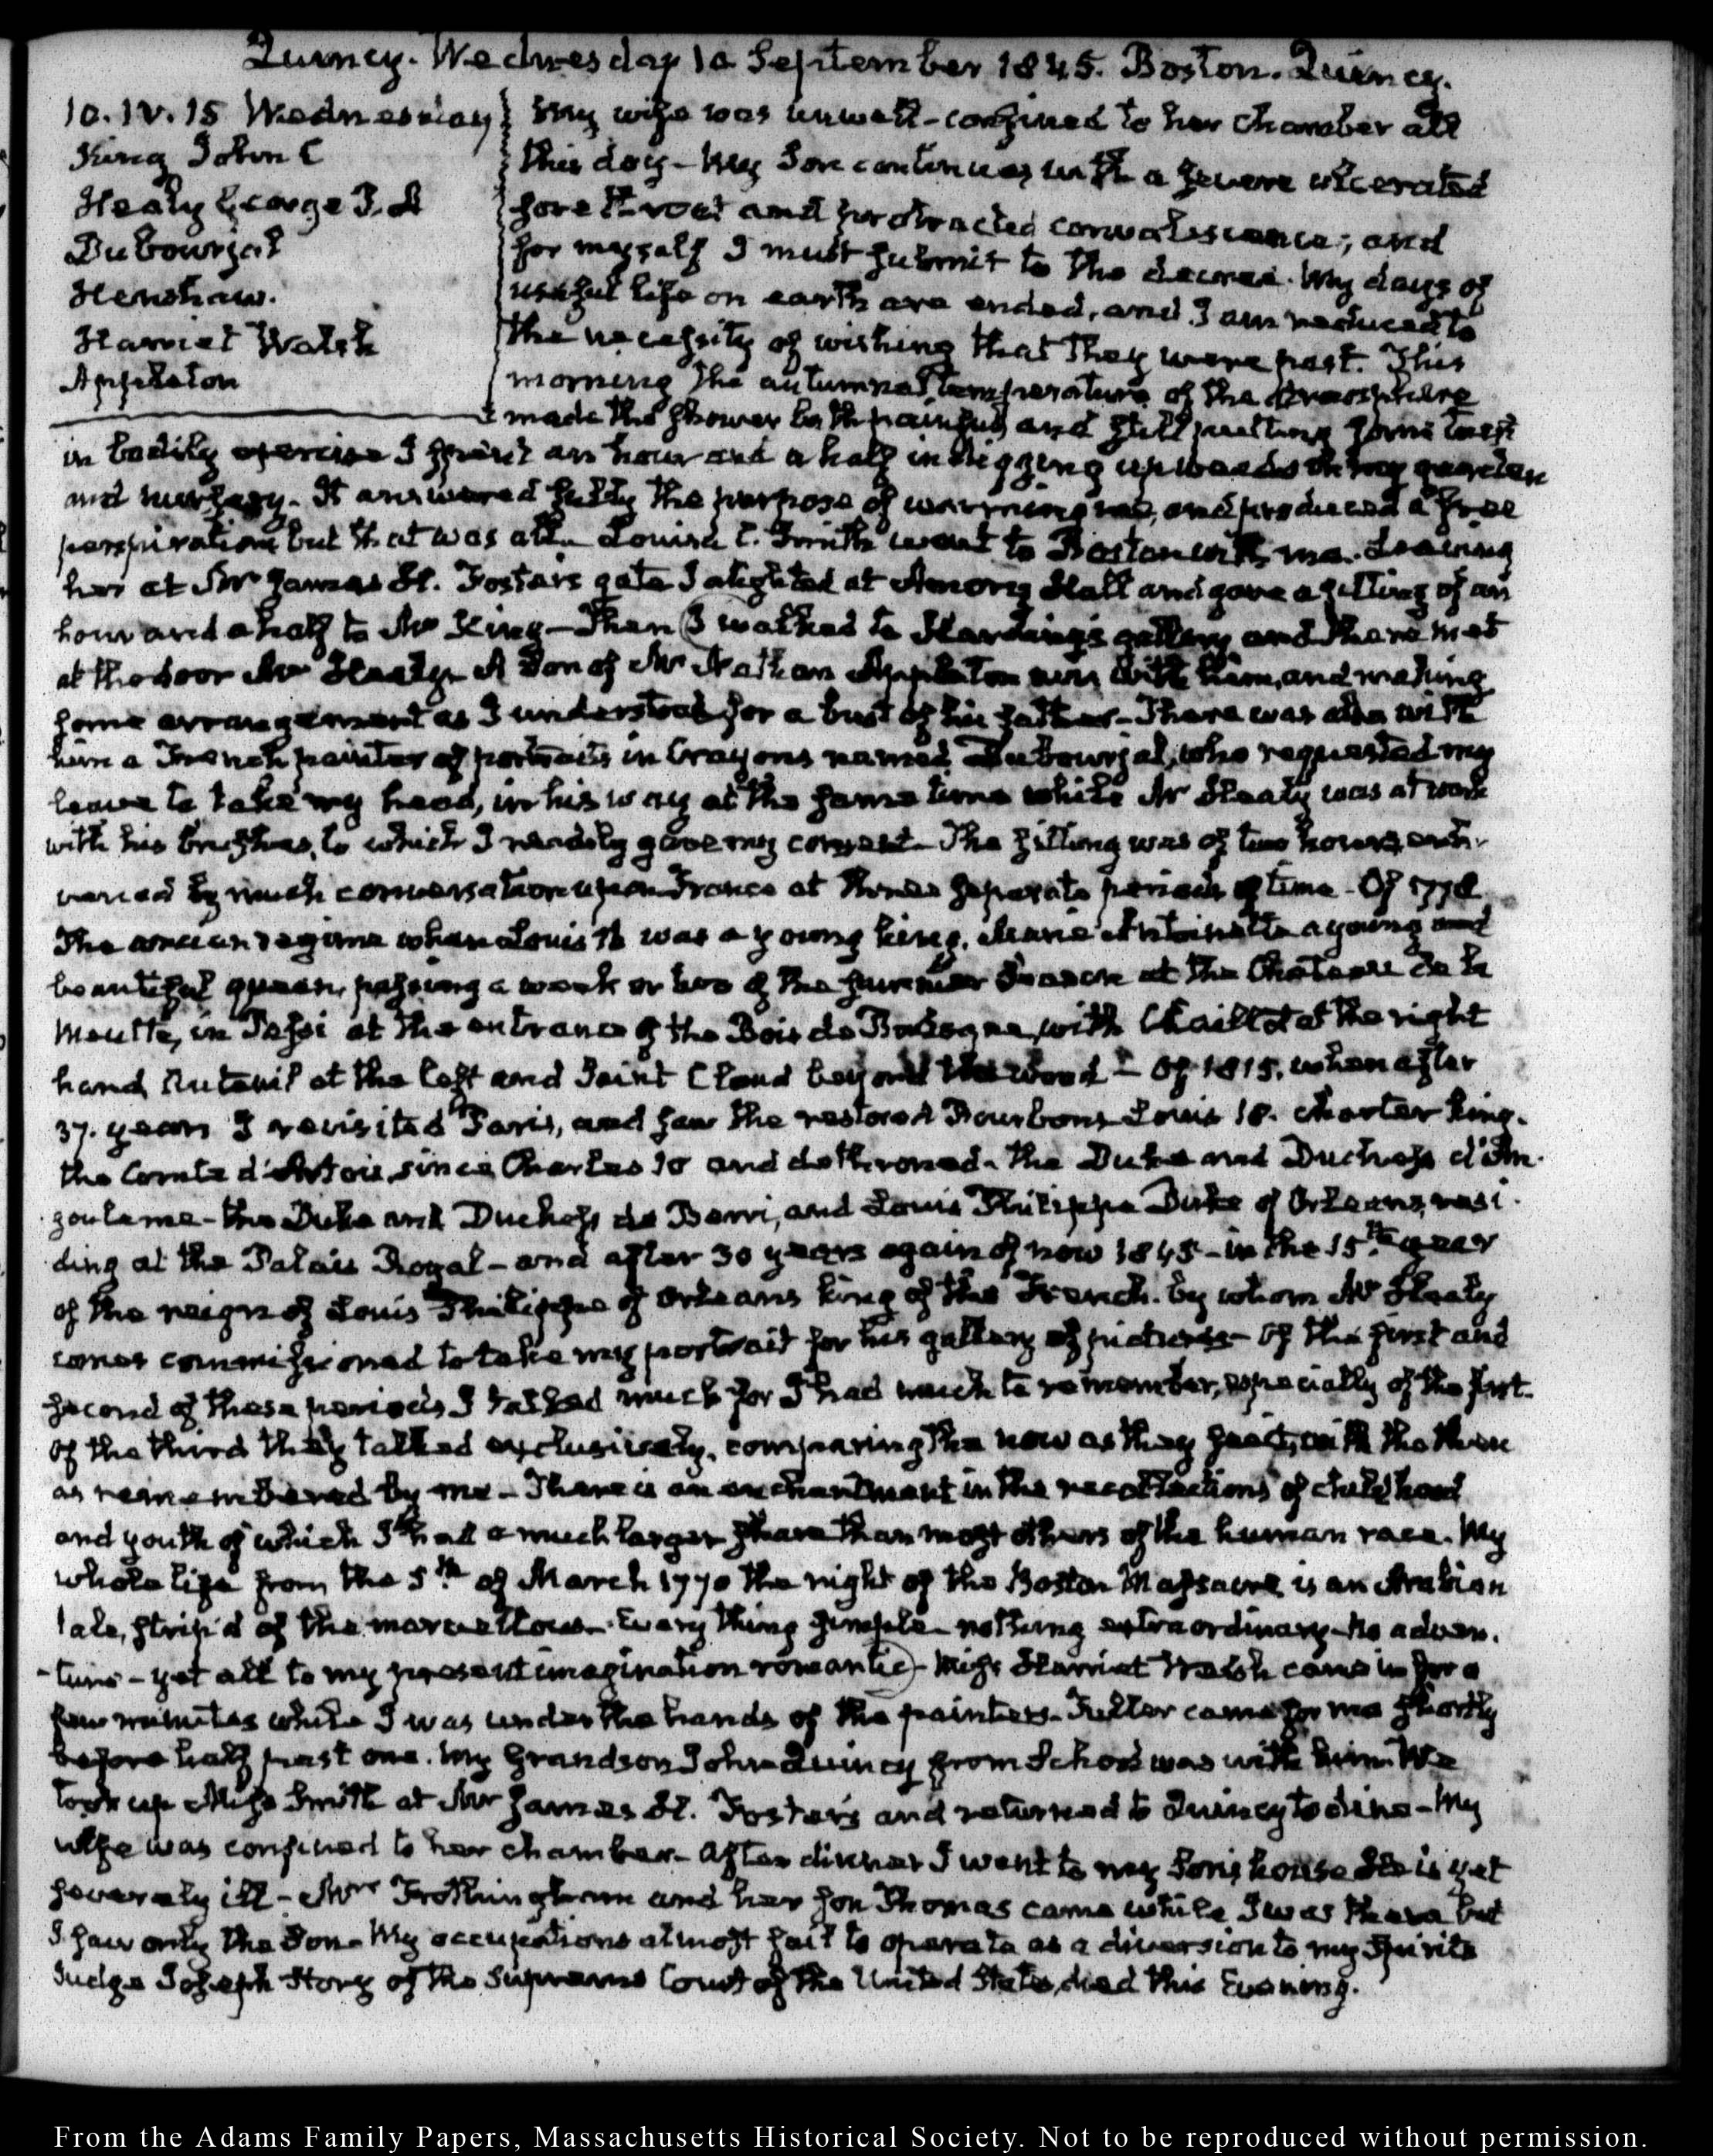 Quincy. Wednesday 10 September 1845. Boston. Quincy.
10. IV. 15 Wednesday
King John C
Healy George P. A
Dubourjal
Henshaw.
Harriet Welsh
Appleton
My wife was unwell - confined to her chamber all
this day - My Son continues with a severe ulcerated
sore throat and protracted convalescence; and
for myself I must submit to the decree. My days of
useful life on earth are ended, and I am reduced to
the necessity of wishing that they were past. This
morning the autumnal temperature of the atmosphere
made the shower bath painful and still putting some trust
in bodily exercise I spent an hour and a half in digging up weeds in my garden
and nursery. It answered fully the purpose of warming me, and produced a free
perspiration but that was all. Louisa C. Smith went to Boston with me. Leaving
her at Mr James H. Foster's gate I alighted at Amory Hall and gave a sitting of an
hour and a half to Mr King - Then I walked to Harding's gallery and there met
at the door Mr Healy. A Son of Mr Nathan Appleton was with him, and making
some arrangement as I understood for a bust of his father - There was also with
him a French painter of portraits in Crayons named Dubourjal, who requested my
leave to take my head, in his way at the same time while Mr Healy was at work
with his brushes, to which I readily gave my consent - The sitting was of two hours,
varied by much conversation upon France at three separate periods of time - Of 1778
The ancien regime when Louis 16 was a young king, Marie Antoinette a young and
beautiful queen, passing a week or two of the summer Season at the Chateau de la
Meutte, in Passi at the entrance of the Bois de Bologne, with Chaillot at the right
hand, Auteuil at the left and Saint Cloud beyond the wood - Of 1815, when after
37. years I revisited Paris, and saw the restored Bourbons Louis 18. charter king.
the Comte d'Artois, since Charles 10 and dethroned - the Duke and Duchess d'An-
goulame - the Duke and Duchess de Berri, and Louis Philippe Duke of Orleans, resi-
ding at the Palais Royal - and after 30 years again of now 1845 - in the 15th year
of the reign of Louis Philippe of Orleans king of the French. by whom Mr Healy
comes commissioned to take my portrait for his gallery of pictures - Of the first and
second of these periods I talked much for I had much to remember, especially of the first.
Of the third they talked exclusively, comparing the now as they said, with the then
as remembered by me - There is an enchantment in the recollections of childhood
and youth of which I had a much larger share than most others of the human race. My
whole life from the 5th of March 1770 the night of the Boston Massacre is an Arabian
tale, strip'd of the marvellous - Every thing simple - nothing extraordinary - no adven-
-ture - yet all to my present imagination romantic - Miss Harriet Welsh came in for a
few minutes while I was under the hands of the painters - Fuller came for me shortly
before half past one. My Grandson John Quincy from School was with him. We
took up Miss Smith at Mr James H. Foster's and returned to Quincy to dine - My
wife was confined to her chamber - After dinner I went to my Son's house He is yet
severely ill - Mrs Frothingham and her son Thomas came while I was there but
I saw only the Son - My occupations almost fail to operate as a diversion to my Spirits
Judge Joseph Story of the Supreme Court of the United States, died this Evening.
From the Adams Family Papers, Massachusetts Historical Society. Not to be reproduced without permission.